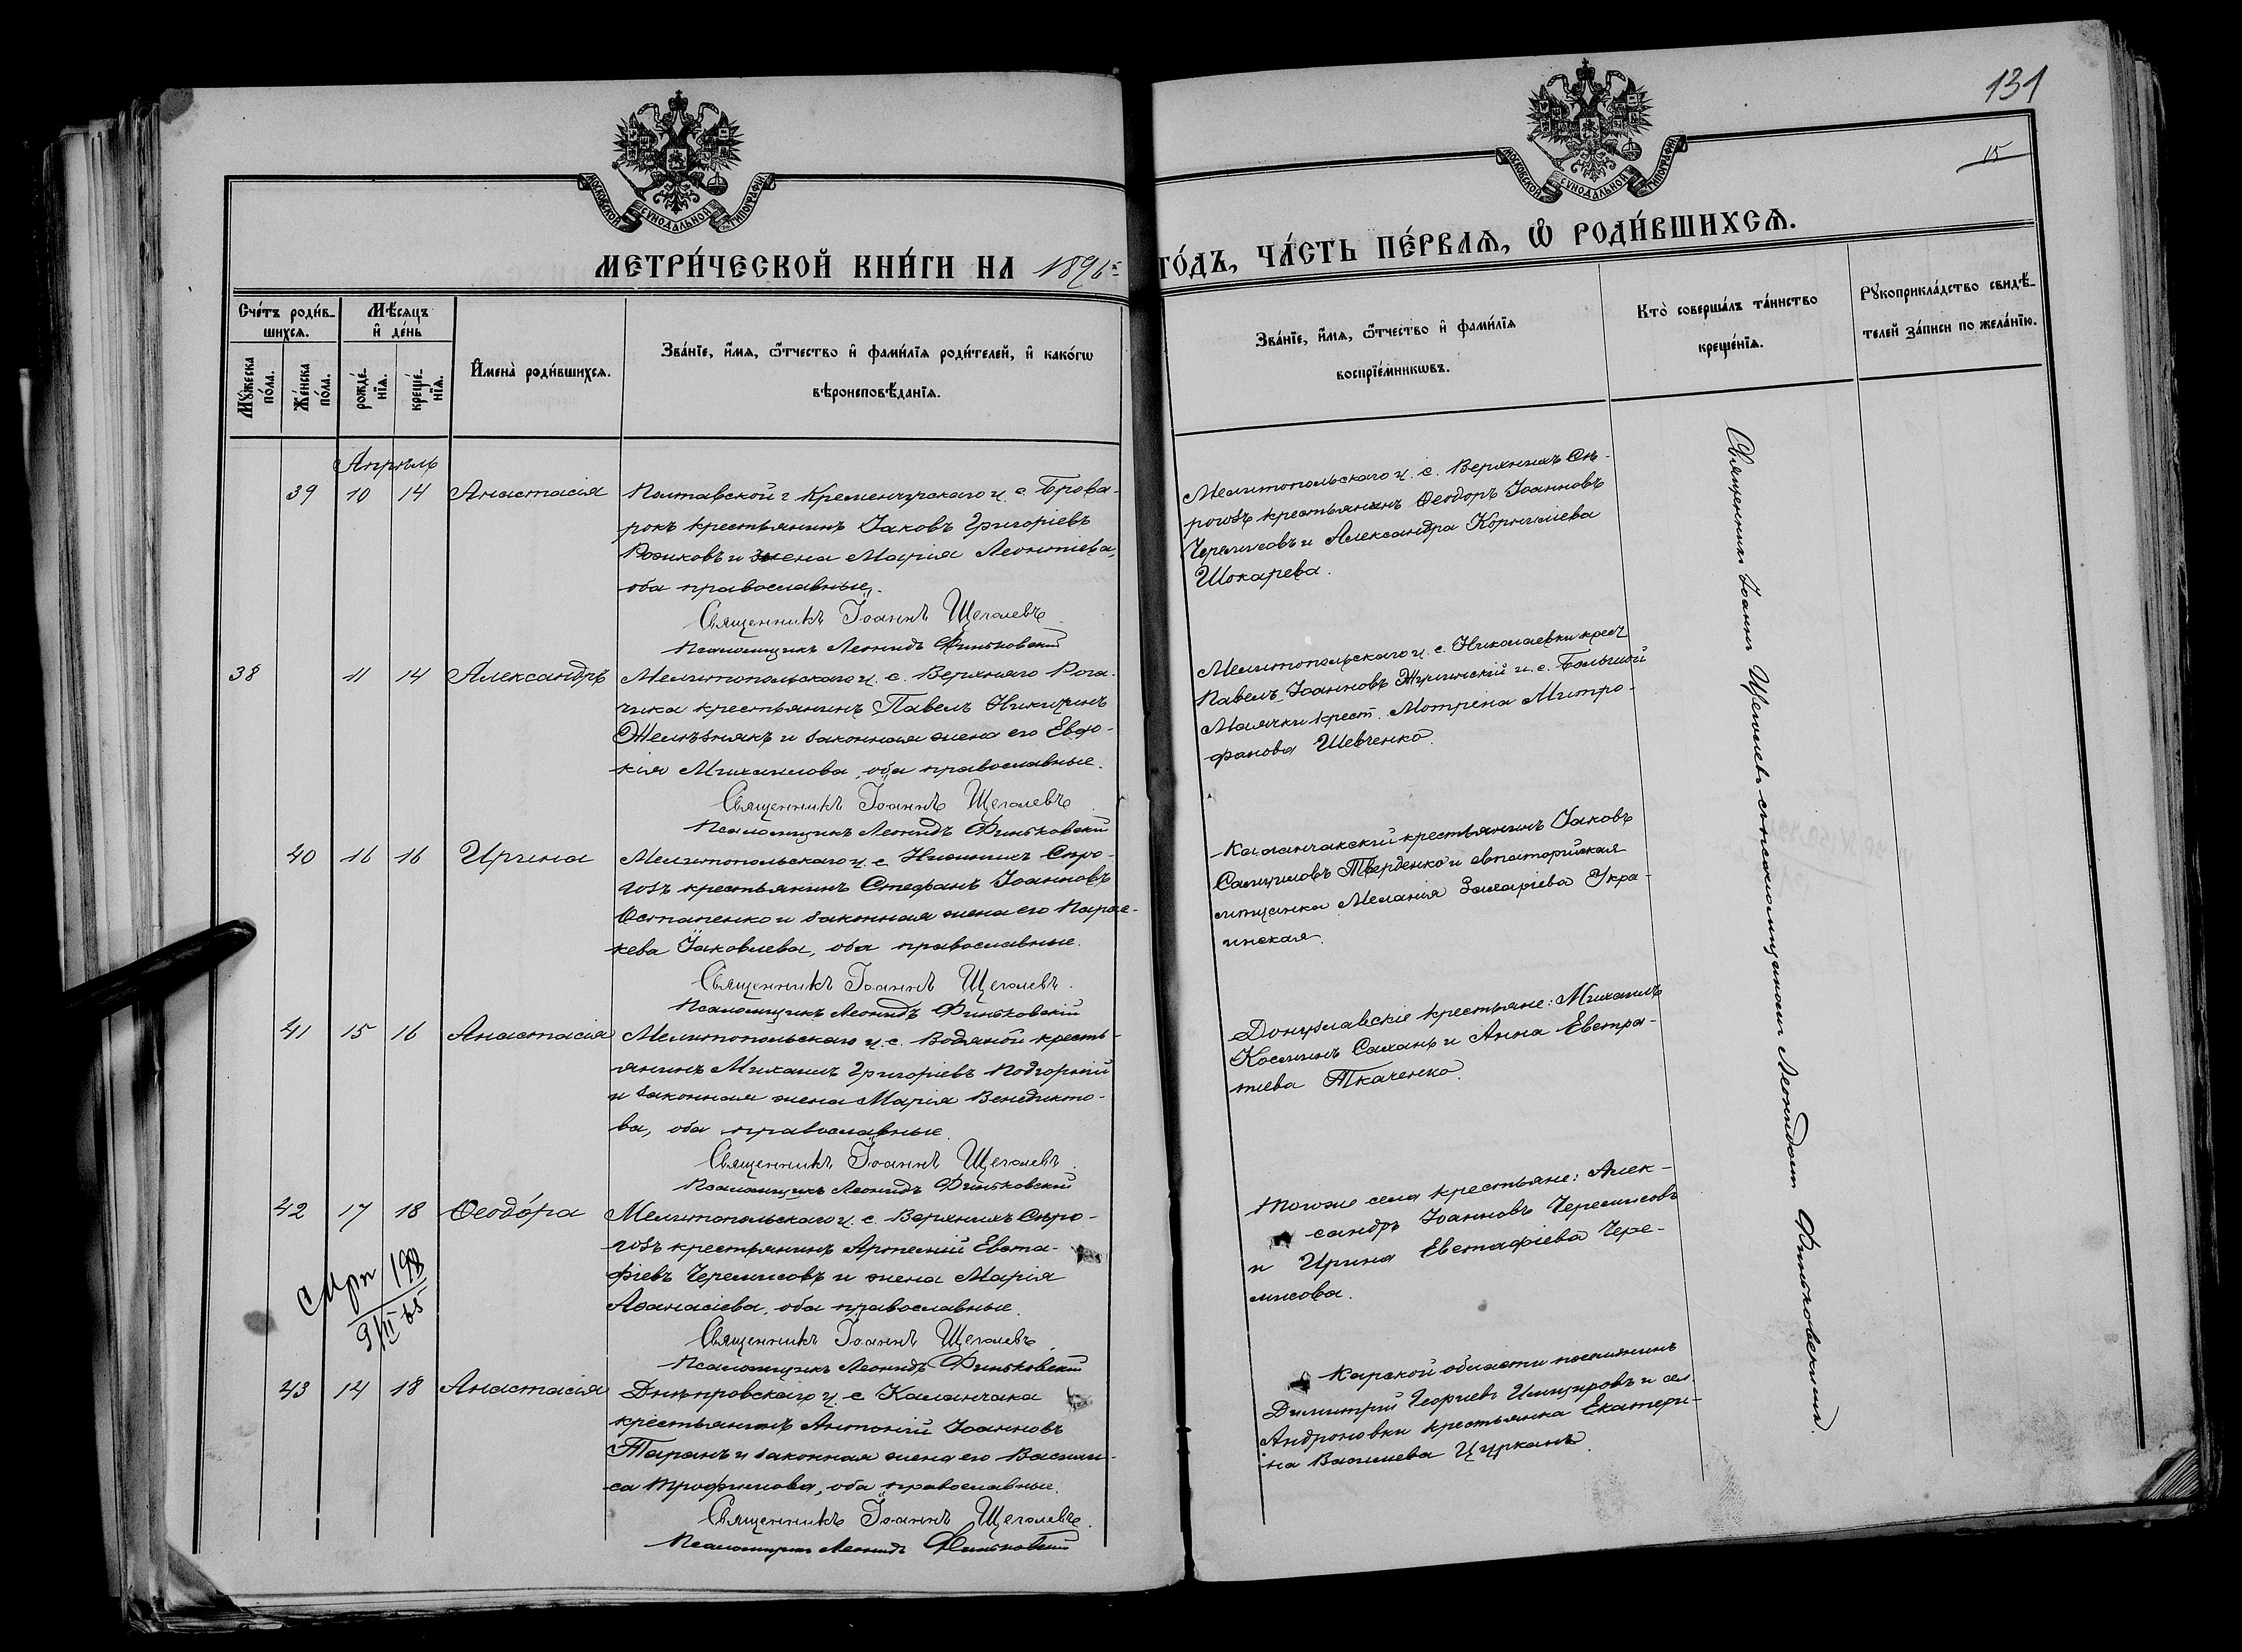 131
15
МОСКОВСКОЙ СУНОДАЛЬНОЙ ТИПОГРАФІИ
МОСКОВСКОЙ СУНОДАЛЬНОЙ ТИПОГРАФІИ
МЕТРИ́ЧЕСКОЙ КНИ́ГИ НА 1896й
ГО́ДЪ, ЧА́СТЬ ПЕ́РВАѦ, Ѡ҆ РОДИ́ВШИХСѦ.
Сче́тъ роди́в-
шихсѧ.
Мѣ́сѧцъ
и҆ де́нь
Мꙋ́жеска
по́ла.
Же́нска
по́ла.
рожде́-
нїѧ.
креще́-
нїѧ.
И҆мена̀ роди́вшихсѧ.
Зва́нїе, и҆́мѧ, ѻ҆́тчество и҆ фами́лїѧ роди́телей, и҆ како́гѡ
вѣроисповѣ́данїѧ.
Зва́нїе, и҆́мѧ, ѻ҆́тчество и҆ фами́лїѧ
воспрїе́мникѡвъ.
Кто̀ соверша́лъ та́инство
креще́нїѧ.
Рꙋкоприкла́дство свидѣ́-
телей за́писи по жела́нїю.
Апрѣль
39 10 14 Анастасія Полтавской г. Кременчугскаго у. с. Брова-
рокъ крестьянинъ Іаковъ Григоріевъ
и жена Марія Леонтіева,
оба православные.
Священникъ Іоаннъ Щеголевъ
Псаломщикъ Леонидъ Финьковскій
Мелитопольскаго у. с. Верхнихъ Сѣ-
рогозъ крестьянинъ Ѳеодоръ Іоанновъ
Черемисовъ и Александра Корниліева
Шокарева.
38 11 14 Александръ Мелитопольскаго у. с. Верхняго Рога-
чика крестьянинъ Павелъ Никитинъ
Желѣзнякъ и законная жена его Евдо-
кія Михаилова, оба православные.
Священникъ Іоаннъ Щеголевъ
Псаломщикъ Леонидъ Финьковскій
Мелитопольскаго у. с. Николаевки крест.
Павелъ Іоанновъ и с. Большой
Маячки крест. Мотрена Митро-
фанова Шевченко.
40 16 16 Ирина Мелитопольскаго у. с. Нижнихъ Сѣро-
гозъ крестьянинъ Стефанъ Іоанновъ
Остапенко и законная жена его Парас-
кева Іаковлева, оба православные.
Священникъ Іоаннъ Щеголевъ.
Псаломщикъ Леонидъ Финьковскій
Каланчакскій крестьянинъ Іаковъ
Самуиловъ Тверденко и евпаторійская
мѣщанка Меланія Захаріева Укра-
инская.
41 15 16 Анастасія Мелитопольскаго у. с. Водяной кресть-
янинъ Михаилъ Григоріевъ Подгорный
и законная жена Марія Венедикто-
ва, оба православные.
Священникъ Іоаннъ Щеголевъ.
Псаломщикъ Леонидъ Финьковскій
Донузлавскіе крестьяне: Михаилъ
Косминъ Саханъ и Анна Евстра-
тіева Ткаченко.
42 17 18 Ѳеодо́ра Мелитопольскаго у. с. Верхнихъ Сѣро-
гозъ крестьянинъ Артемій Евста-
фіевъ Черемисовъ и жена Марія
Аѳанасіева, оба православные.
Священникъ Іоаннъ Щеголевъ.
Псаломщикъ Леонидъ Финьковскій
Того же села крестьяне: Алек-
сандръ Іоанновъ Черемисовъ
и Ирина Евстафіева Чере-
мисова.
43 14 18 Анастасія Днѣпровскаго у. с. Каланчака
крестьянинъ Антоній Іоанновъ
Таранъ и законная жена его Васили-
са Трофимова, оба православные.
Священникъ Іоаннъ Щеголевъ.
Псаломщикъ Леонидъ Финьковскій
Карской области поселянинъ
Димитрій Георгіевъ и сел.
Андроновки крестьянка Екатери-
на Василіева Цурканъ.
Священникъ Іоаннъ Щеголевъ съ псаломщикомъ Леонидомъ Финьковскимъ.